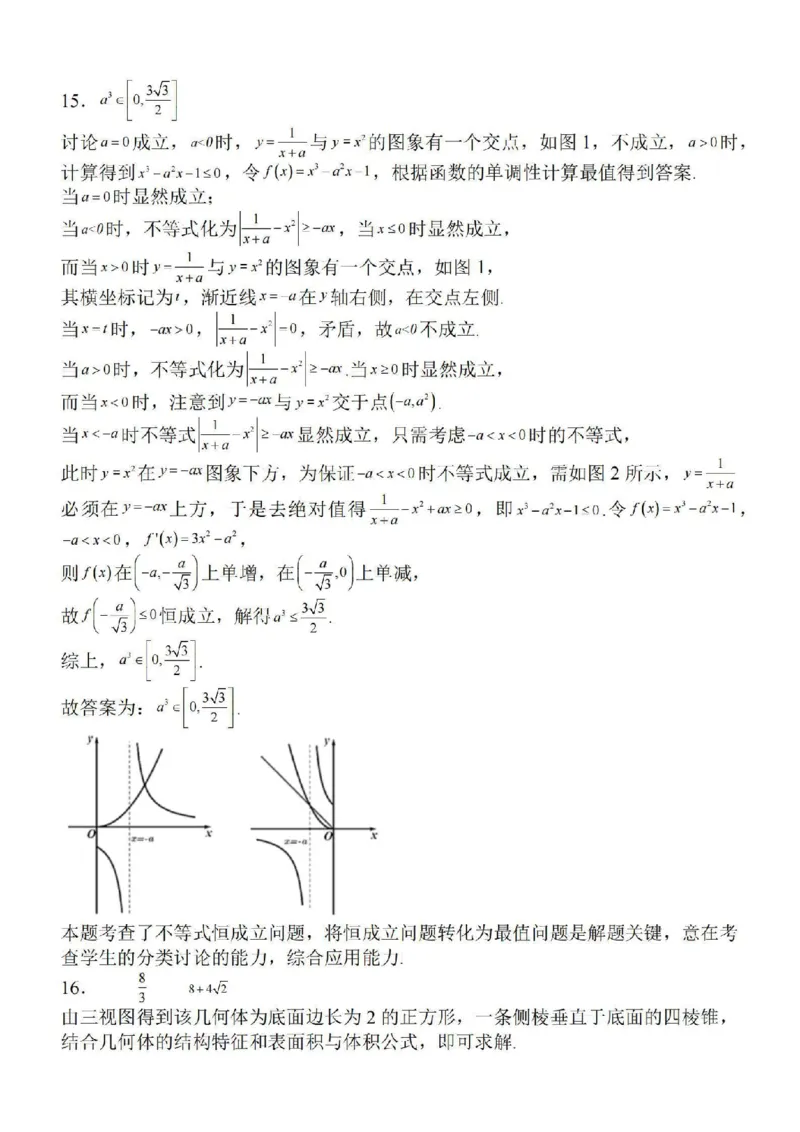 15. a³∈[0, 3√3/2]
讨论a=0成立，a<0时，y=1/(x+a)与y=x²的图象有一个交点，如图1，不成立，a>0时，
计算得到x³-a²x-1≤0，令f(x)=x³-a²x-1，根据函数的单调性计算最值得到答案.
当a=0时显然成立；
当a<0时，不等式化为|1/(x+a)-x²|≥-ax，当x≤0时显然成立，
而当x>0时y=1/(x+a)与y=x²的图象有一个交点，如图1，
其横坐标记为t，渐近线x=-a在y轴右侧，在交点左侧.
当x=t时，-ax>0，|1/(x+a)-x²|=0，矛盾，故a<0不成立.
当a>0时，不等式化为|1/(x+a)-x²|≥-ax.当x≥0时显然成立，
而当x<0时，注意到y=-ax与y=x²交于点(-a,a²).
当x<-a时不等式|1/(x+a)-x²|≥-ax显然成立，只需考虑-a<x<0时的不等式，
此时y=x²在y=-ax图象下方，为保证-a<x<0时不等式成立，需如图2所示，y=1/(x+a)
必须在y=-ax上方，于是去绝对值得1/(x+a)-x²+ax≥0，即x³-a²x-1≤0.令f(x)=x³-a²x-1，
-a<x<0，f'(x)=3x²-a²，
则f(x)在(-a,-a/√3)上单增，在(-a/√3,0)上单减，
故f(-a/√3)≤0恒成立，解得a³≤3√3/2.
综上，a³∈[0, 3√3/2].
故答案为：a³∈[0, 3√3/2].
y
O
x=-a
x
y
x=-a
O
x
本题考查了不等式恒成立问题，将恒成立问题转化为最值问题是解题关键，意在考
查学生的分类讨论的能力，综合应用能力.
16. 8/3 8+4√2
由三视图得到该几何体为底面边长为2的正方形，一条侧棱垂直于底面的四棱锥，
结合几何体的结构特征和表面积与体积公式，即可求解.